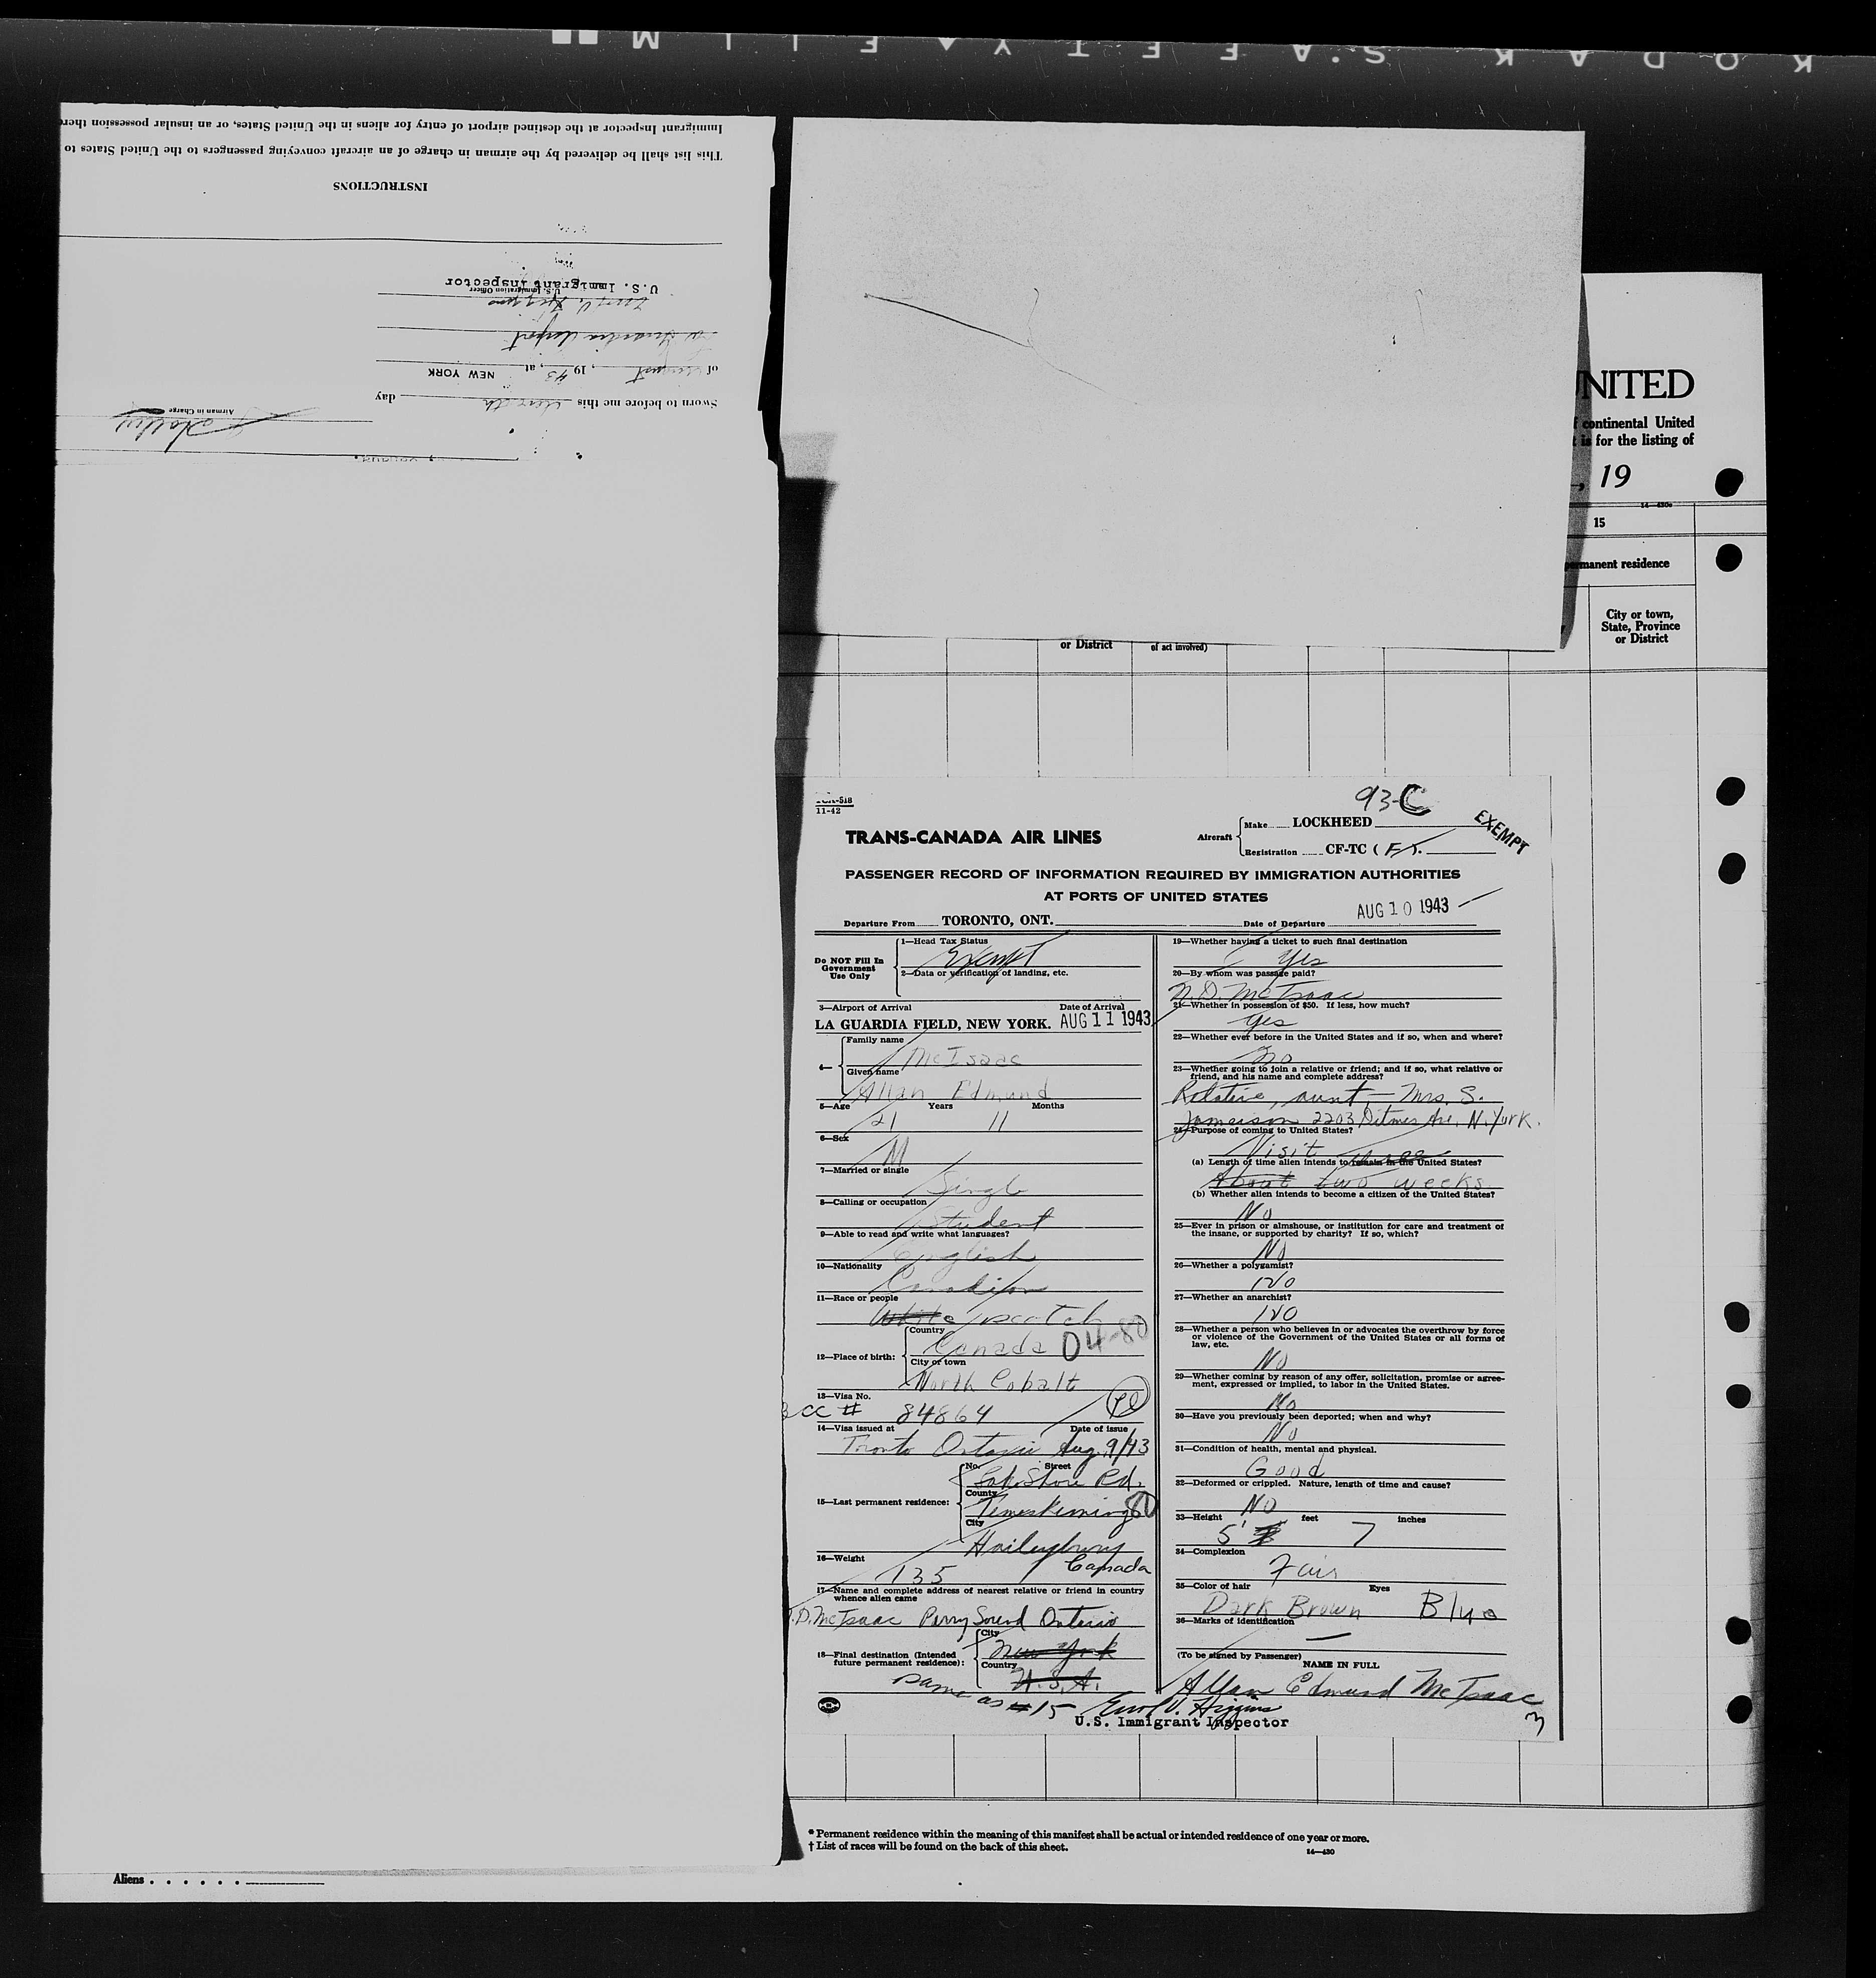 KODAK SAFETY FILM
Immigrant Inspector at the destined airport of entry for aliens in the United States, or an insular possession
This list shall be delivered by the airman in charge of an aircraft conveying passengers to the United States to
INSTRUCTIONS
U.S. Immigrant Inspector
U.S. Immigration Officer
La Guardia Airport
of August, 1943, at NEW YORK
Sworn to before me this day
Airman in Charge
UNITED
continental United
is for the listing of
, 19
14—430
15
permanent residence
City or town,
State, Province
or District
or District
of act involved)
93-C
TCA-518
11-42
EXEMPT
TRANS-CANADA AIR LINES
Aircraft
Make LOCKHEED
Registration CF-TC ( F ).
PASSENGER RECORD OF INFORMATION REQUIRED BY IMMIGRATION AUTHORITIES
AT PORTS OF UNITED STATES
Departure From TORONTO, ONT. Date of Departure AUG 10 1943
Do NOT Fill In
Government
Use Only
1—Head Tax Status
Exempt
2—Data or verification of landing, etc.
3—Airport of Arrival Date of Arrival
LA GUARDIA FIELD, NEW YORK. AUG 11 1943
4—
Family name
McIsaac
Given name
Allan Edmund
5—Age Years Months
21 11
6—Sex
M
7—Married or single
Single
8—Calling or occupation
Student
9—Able to read and write what languages?
English
10—Nationality
Canadian
11—Race or people
White scotch
12—Place of birth:
Country
Canada 04-80
City or town
North Cobalt
13—Visa No.
CC # 84864
14—Visa issued at Date of issue
Toronto Ontario Aug. 9/43
15—Last permanent residence:
No. Street
Lakeshore Rd.
County
Temiskeming
City
Haileybury
Canada
16—Weight
135
17—Name and complete address of nearest relative or friend in country
whence alien came
D. McIsaac Parry Sound Ontario
18—Final destination (Intended
future permanent residence):
City
New York
Country
U.S.A.
same as #15
19—Whether having a ticket to such final destination
Yes
20—By whom was passage paid?
N. D. McIsaac
21—Whether in possession of $50. If less, how much?
Yes
22—Whether ever before in the United States and if so, when and where?
No
23—Whether going to join a relative or friend; and if so, what relative or
friend, and his name and complete address?
Relative, aunt — Mrs. S.
Jameison 2203 Ditmes Ave. N. York.
24—Purpose of coming to United States?
Visit
(a) Length of time alien intends to remain in the United States?
About two weeks
(b) Whether alien intends to become a citizen of the United States?
No
25—Ever in prison or almshouse, or institution for care and treatment of
the insane, or supported by charity? If so, which?
No
26—Whether a polygamist?
No
27—Whether an anarchist?
No
28—Whether a person who believes in or advocates the overthrow by force
or violence of the Government of the United States or all forms of
law, etc.
No
29—Whether coming by reason of any offer, solicitation, promise or agree-
ment, expressed or implied, to labor in the United States.
No
30—Have you previously been deported; when and why?
No
31—Condition of health, mental and physical.
Good
32—Deformed or crippled. Nature, length of time and cause?
No
33—Height feet inches
5' 7
34—Complexion
Fair
35—Color of hair Eyes
Dark Brown Blue
36—Marks of identification
—
(To be signed by Passenger)
NAME IN FULL
Allan Edmund McIsaac
3
Errol V. Higgins
U.S. Immigrant Inspector
* Permanent residence within the meaning of this manifest shall be actual or intended residence of one year or more.
† List of races will be found on the back of this sheet.
14—430
Aliens . . . . . .